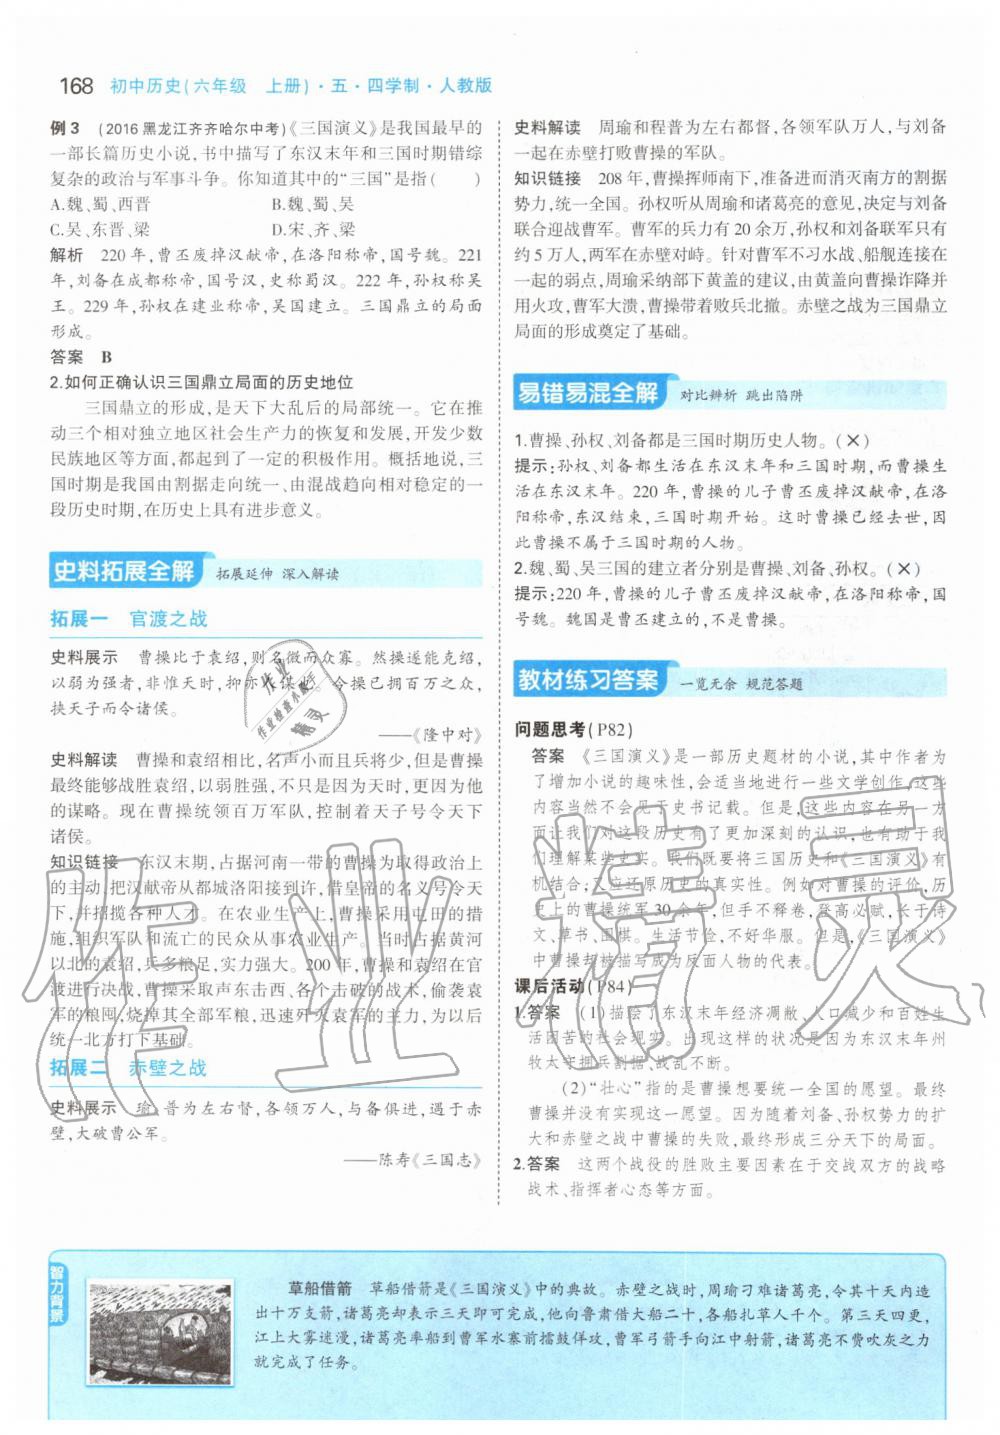 168 初中历史(六年级　上册)·五·四学制·人教版
例3　(2016黑龙江齐齐哈尔中考)《三国演义》是我国最早的
一部长篇历史小说,书中描写了东汉末年和三国时期错综
复杂的政治与军事斗争。你知道其中的“三国”是指(　　)
A.魏、蜀、西晋　　B.魏、蜀、吴
C.吴、东晋、梁　　D.宋、齐、梁
解析　220年,曹丕废掉汉献帝,在洛阳称帝,国号魏。221
年,刘备在成都称帝,国号汉,史称蜀汉。222年,孙权称吴
王。229年,孙权在建业称帝,吴国建立。三国鼎立的局面
形成。
答案　B
2.如何正确认识三国鼎立局面的历史地位
三国鼎立的形成,是天下大乱后的局部统一。它在推
动三个相对独立地区社会生产力的恢复和发展,开发少数
民族地区等方面,都起到了一定的积极作用。概括地说,三
国时期是我国由割据走向统一、由混战趋向相对稳定的一
段历史时期,在历史上具有进步意义。
史料拓展全解　拓展延伸 深入解读
拓展一　官渡之战
史料展示　曹操比于袁绍,则名微而众寡。然操遂能克绍,
以弱为强者,非惟天时,抑亦人谋也。今操已拥百万之众,
挟天子而令诸侯。
——《隆中对》
史料解读　曹操和袁绍相比,名声小而且兵将少,但是曹操
最终能够战胜袁绍,以弱胜强,不仅是因为天时,更因为他
的谋略。现在曹操统领百万军队,控制着天子号令天下
诸侯。
知识链接　东汉末期,占据河南一带的曹操取得政治上
的主动,把汉献帝从都城洛阳接到许,借皇帝的名义号令天
下,并招揽各种人才。在农业生产上,曹操采用屯田的措
施,组织军队和流亡的民众从事农业生产。当时占据黄河
以北的袁绍,兵多粮足,实力强大。200年,曹操和袁绍在官
渡进行决战,曹操采取声东击西、各个击破的战术,偷袭袁
军的粮囤,烧掉其全部军粮,迅速歼灭袁军的主力,为以后
统一北方打下基础。
拓展二　赤壁之战
史料展示　瑜、普为左右督,各领万人,与备俱进,遇于赤
壁,大破曹公军。
——陈寿《三国志》
史料解读　周瑜和程普为左右都督,各领军队万人,与刘备
一起在赤壁打败曹操的军队。
知识链接　208年,曹操挥师南下,准备进而消灭南方的割据
势力,统一全国。孙权听从周瑜和诸葛亮的意见,决定与刘备
联合迎战曹军。曹军的兵力有20余万,孙权和刘备联军只有
约5万人,两军在赤壁对峙。针对曹军不习水战、船舰连接在
一起的弱点,周瑜采纳部下黄盖的建议,由黄盖向曹操诈降并
用火攻,曹军大溃,曹操带着败兵北撤。赤壁之战为三国鼎立
局面的形成奠定了基础。
易错易混全解　对比辨析 跳出陷阱
1.曹操、孙权、刘备都是三国时期历史人物。(×)
提示:孙权、刘备都生活在东汉末年和三国时期,而曹操生
活在东汉末年。220年,曹操的儿子曹丕废掉汉献帝,在洛
阳称帝,东汉结束,三国时期开始。这时曹操已经去世,因
此曹操不属于三国时期的人物。
2.魏、蜀、吴三国的建立者分别是曹操、刘备、孙权。(×)
提示:220年,曹操的儿子曹丕废掉汉献帝,在洛阳称帝,国
号魏。魏国是曹丕建立的,不是曹操。
教材练习答案　一览无余 规范答题
问题思考(P82)
答案　《三国演义》是一部历史题材的小说,其中作者为
了增加小说的趣味性,会适当地进行一些文学创作,这些
内容当然不会见于史书记载。但是,这些内容在另一方
面让我们对这段历史有了更加深刻的认识,也有助于我
们理解某些史实。我们既要将三国历史和《三国演义》有
机结合;又应还原历史的真实性。例如对曹操的评价,历
史上的曹操统军30余年,但手不释卷,登高必赋,长于诗
文、草书、围棋。生活节俭,不好华服。但是,《三国演义》
中曹操却被描写成为反面人物的代表。
课后活动(P84)
1.答案　(1)描绘了东汉末年经济凋敝、人口减少和百姓生
活困苦的社会现实。出现这样的状况是因为东汉末年州
牧太守拥兵割据,战乱不断。
(2)“壮心”指的是曹操想要统一全国的愿望。最终
曹操并没有实现这一愿望。因为随着刘备、孙权势力的扩
大和赤壁之战中曹操的失败,最终形成三分天下的局面。
2.答案　这两个战役的胜败主要因素在于交战双方的战略
战术、指挥者心态等方面。
智力背景
草船借箭　草船借箭是《三国演义》中的典故。赤壁之战时,周瑜刁难诸葛亮,令其十天内造
出十万支箭,诸葛亮却表示三天即可完成,他向鲁肃借大船二十,各船扎草人千个。第三天四更,
江上大雾迷漫,诸葛亮率船到曹军水寨前擂鼓佯攻,曹军弓箭手向江中射箭,诸葛亮不费吹灰之力
就完成了任务。
作业精灵